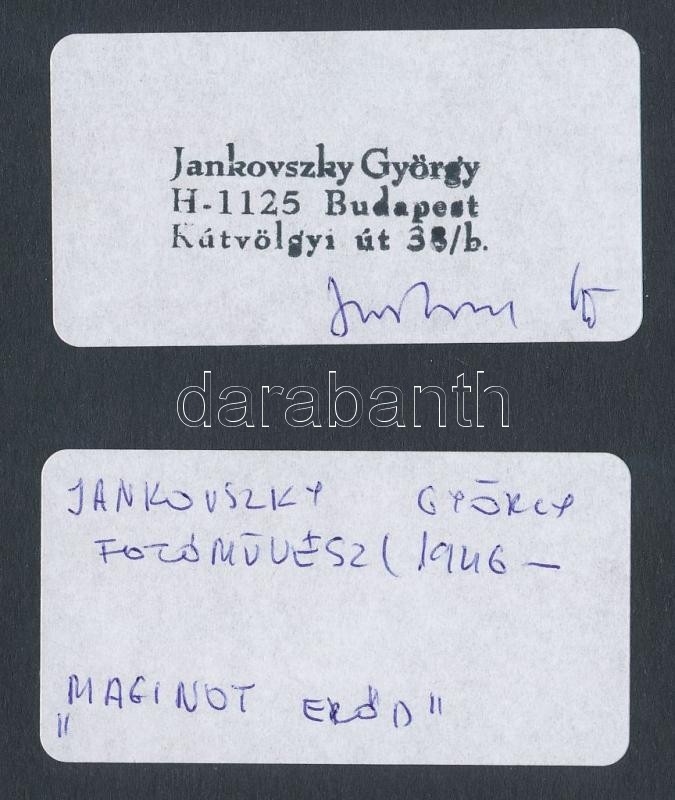 Jankovszky György
H-1125 Budapest
Kútvölgyi út 38/b.
darabanth
JANKOVSZKY GYÖRGY
FOTÓMŰVÉSZ (1946 —
"MAGINOT ERŐD"